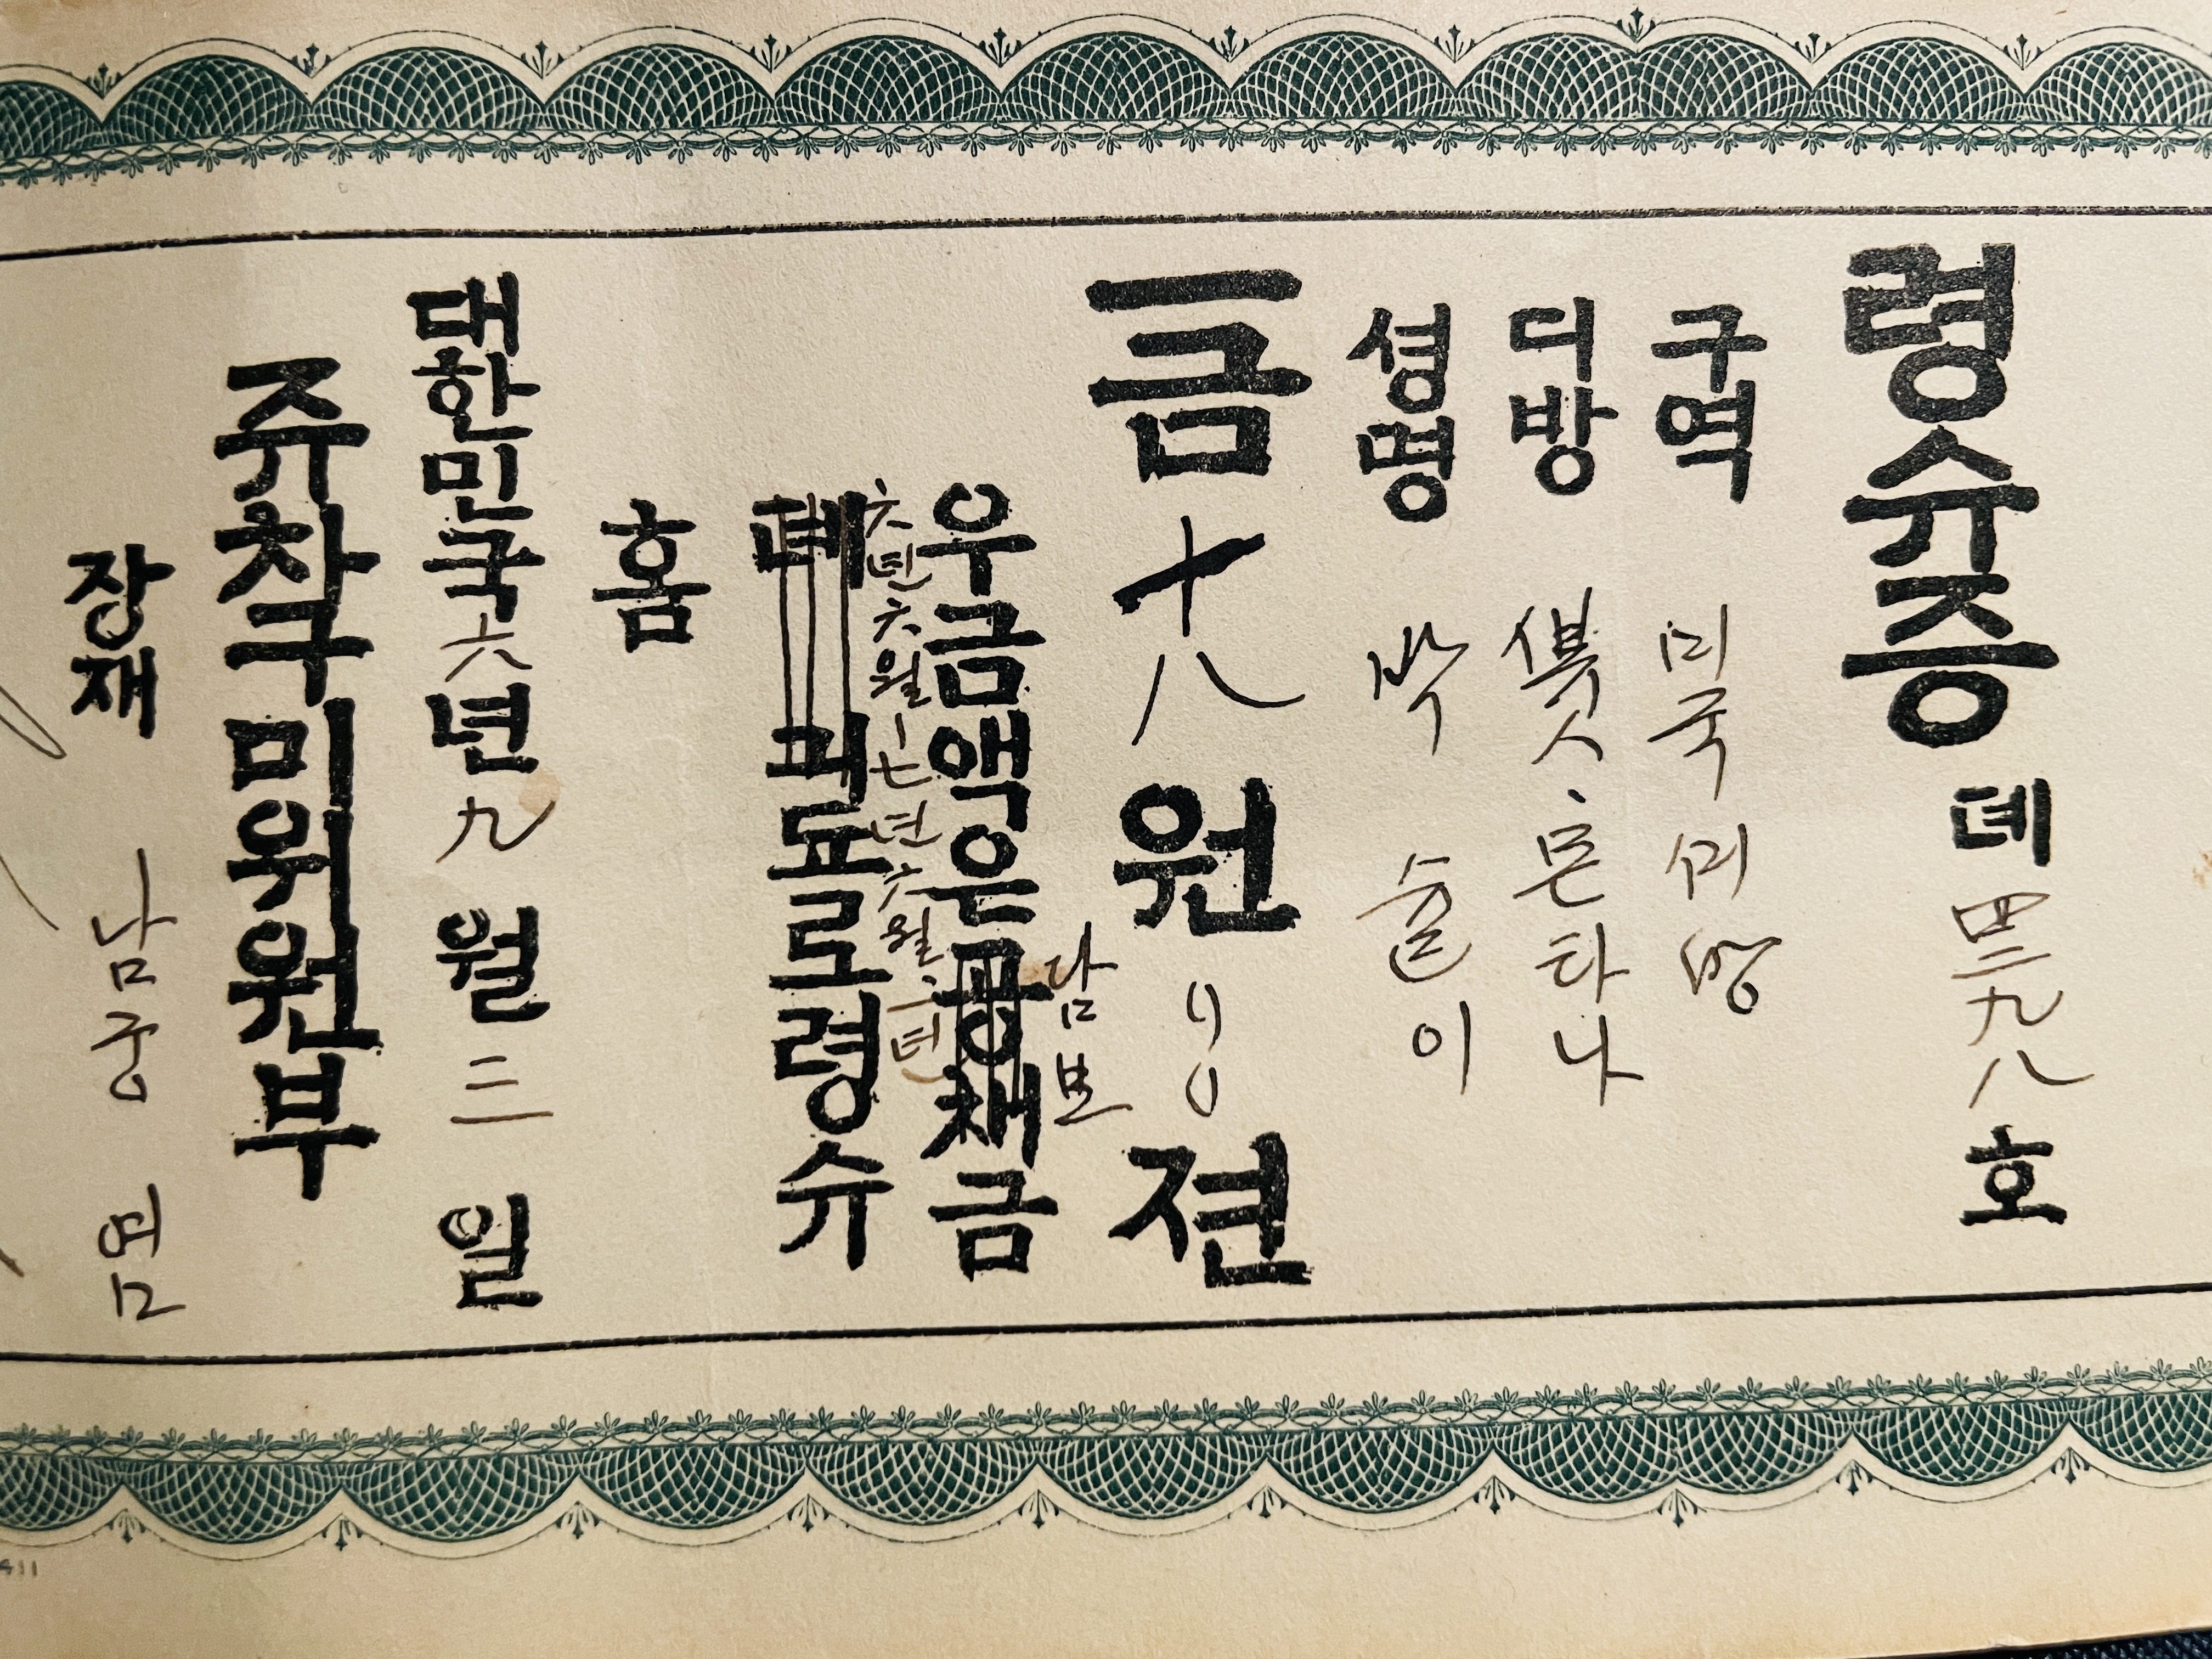 령슈증 뎨四三九八호
구역 미국
디방 몬타나
셩명 박
一금 十八원 00젼
담보
우금액은공채금
六년六월
七년六월
뎨 표로령슈
홈
대한민국六년九월三일
쥬차구미위원부
장재 남궁 염